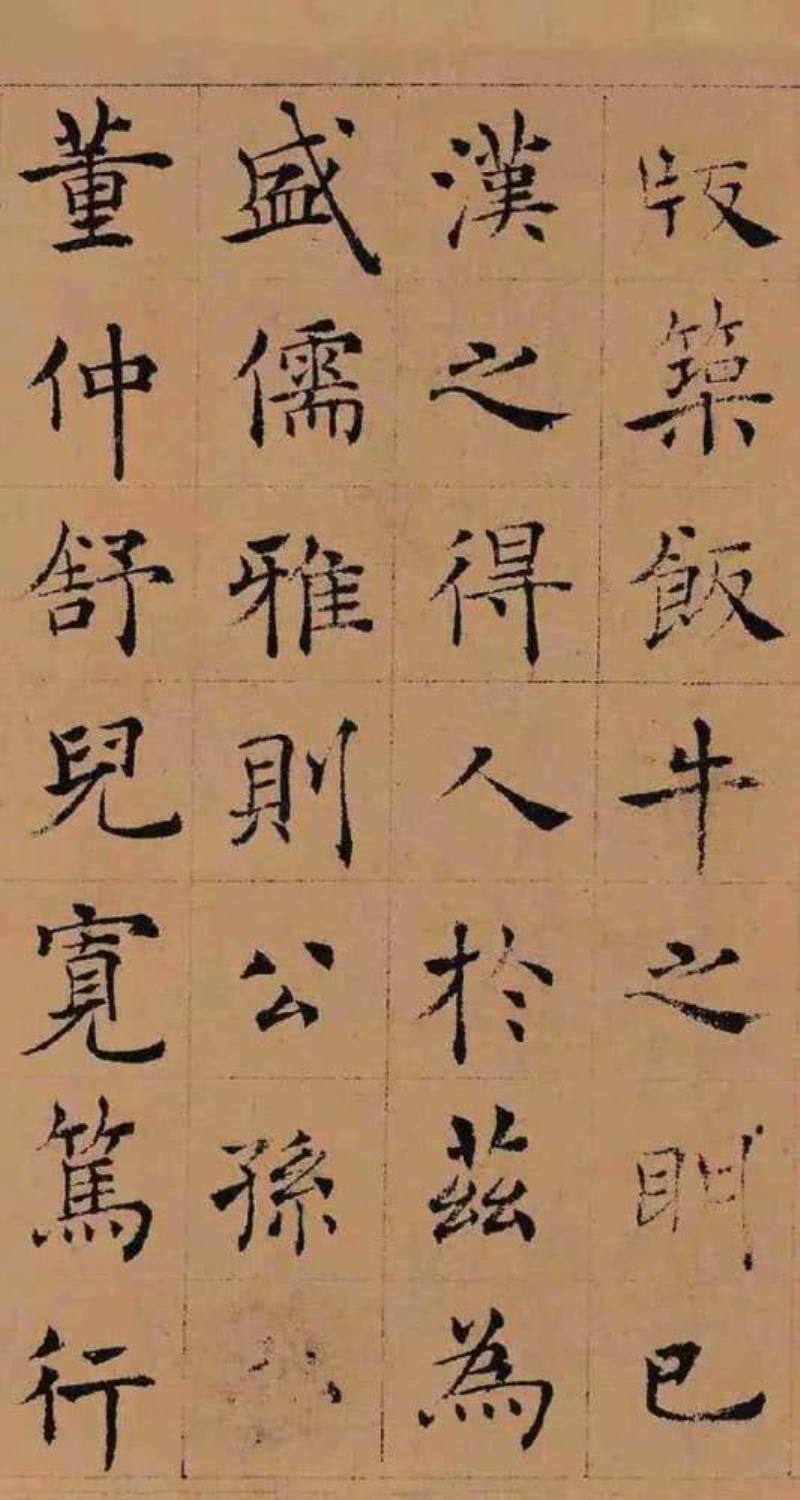 版築飯牛之眀已
漢之得人於茲為
盛儒雅則公孫
董仲舒兒寬篤行